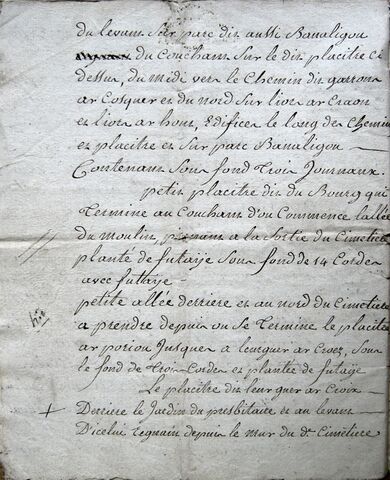 du levant sur parc dit aussi Banaligou
du Couchant sur le dit placitre ci
dessus, du midi vers le Chemin dit garront
ar Cosquer et du nord sur liors ar Craon
et liors ar hont, Edifice le long des Chemin
et placitre et sur parc Banaligou
Contenant sous fond trois Journaux.
petit placitre dit du Bourg qui
termine au Couchant d'ou Commence lallée
du moulin, prenant a la sortie du Cimetiere
planté de futaije sous fond de 14 Cordes
avec futaije
petite allée derriere et au nord du Cimetiere
a prendre depuis ou se termine le placitre
ar poriou Jusques a leurguer ar Croez, sous
le fond de trois Cordes et plantée de futaije
Le placitre dit leurguer ar Croix
+ Derriere le Jardin du presbitaire et au levant
D'icelui regnant depuis le mur du dt Cimetiere